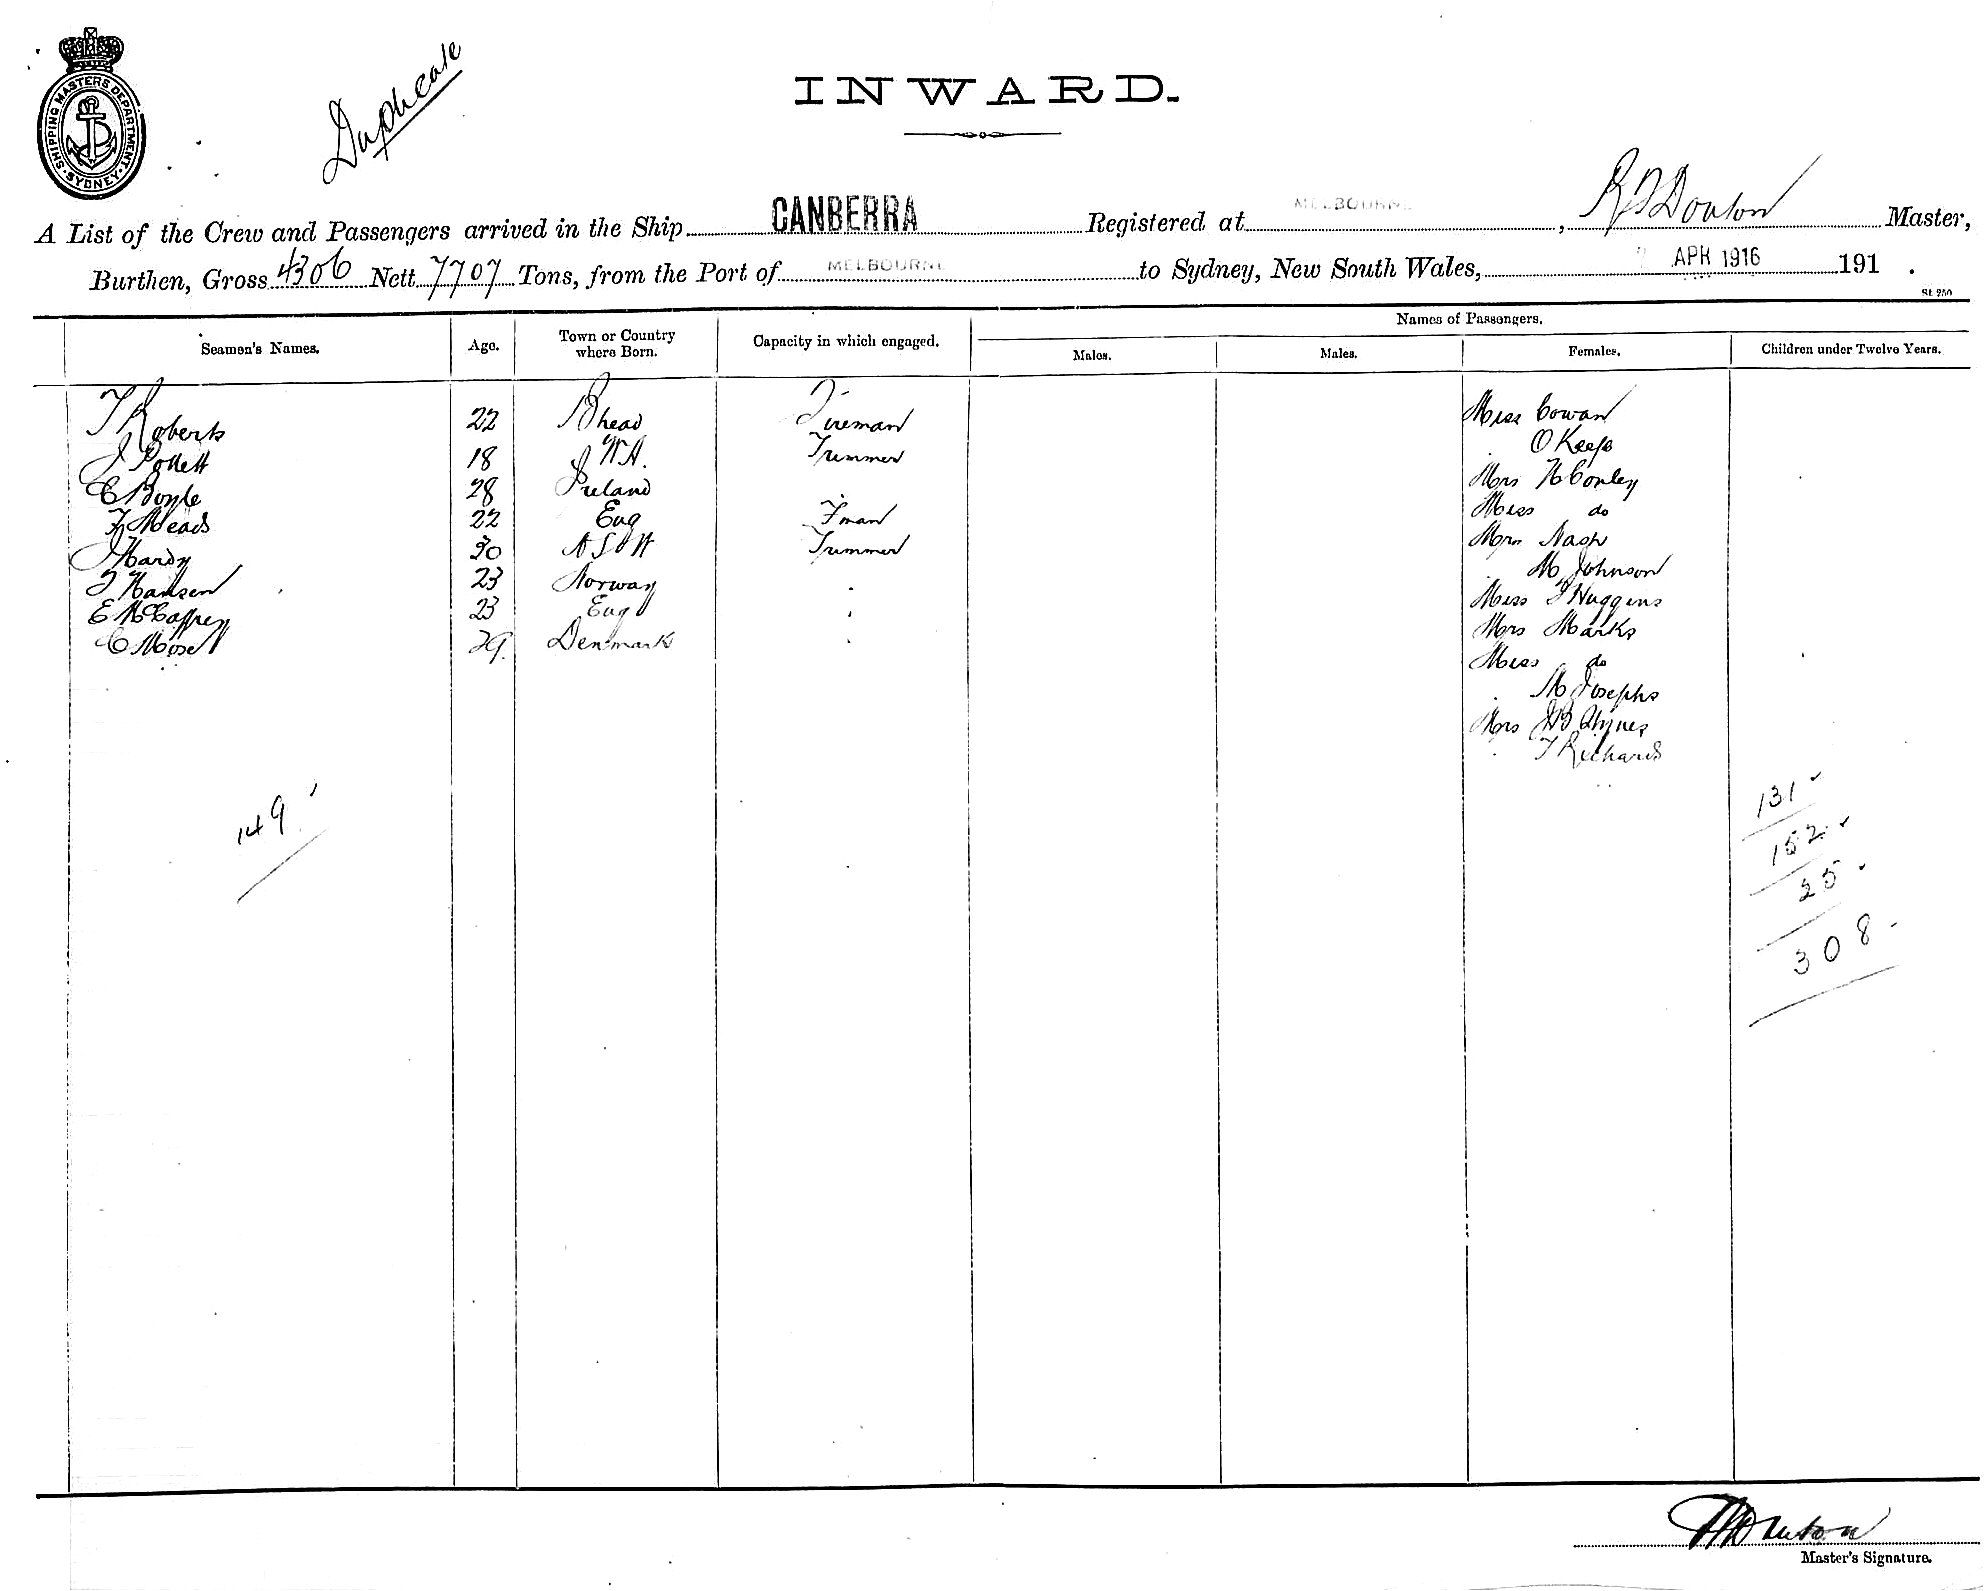 SHIPPING MASTERS DEPARTMENT
SYDNEY
Duplicate
INWARD.
A List of the Crew and Passengers arrived in the Ship CANBERRA Registered at MELBOURNE, Master,
Burthen, Gross 4306 Nett 7707 Tons, from the Port of MELBOURNE to Sydney, New South Wales, APR 1916 191 .
Seamen's Names. Age. Town or Country where Born. Capacity in which engaged. Names of Passengers.
Males. Males. Females. Children under Twelve Years.
T Roberts 22 B'head Fireman Miss Cowan
J Pollett 18 W.A. Trimmer " O'Keefe
C Boyle 28 Ireland Mrs Conley
F Meads 22 Eng F'man Miss do
J Hardy 30 N S W Trimmer Mrs Nash
T Hansen 23 Norway " M Johnson
E McCaffrey 23 Eng " Miss Huggins
C Mose 29 Denmark " Mrs Marks
Miss do
" M Josephs
Mrs
" T Richards
149
131
152
25
308
Master's Signature.